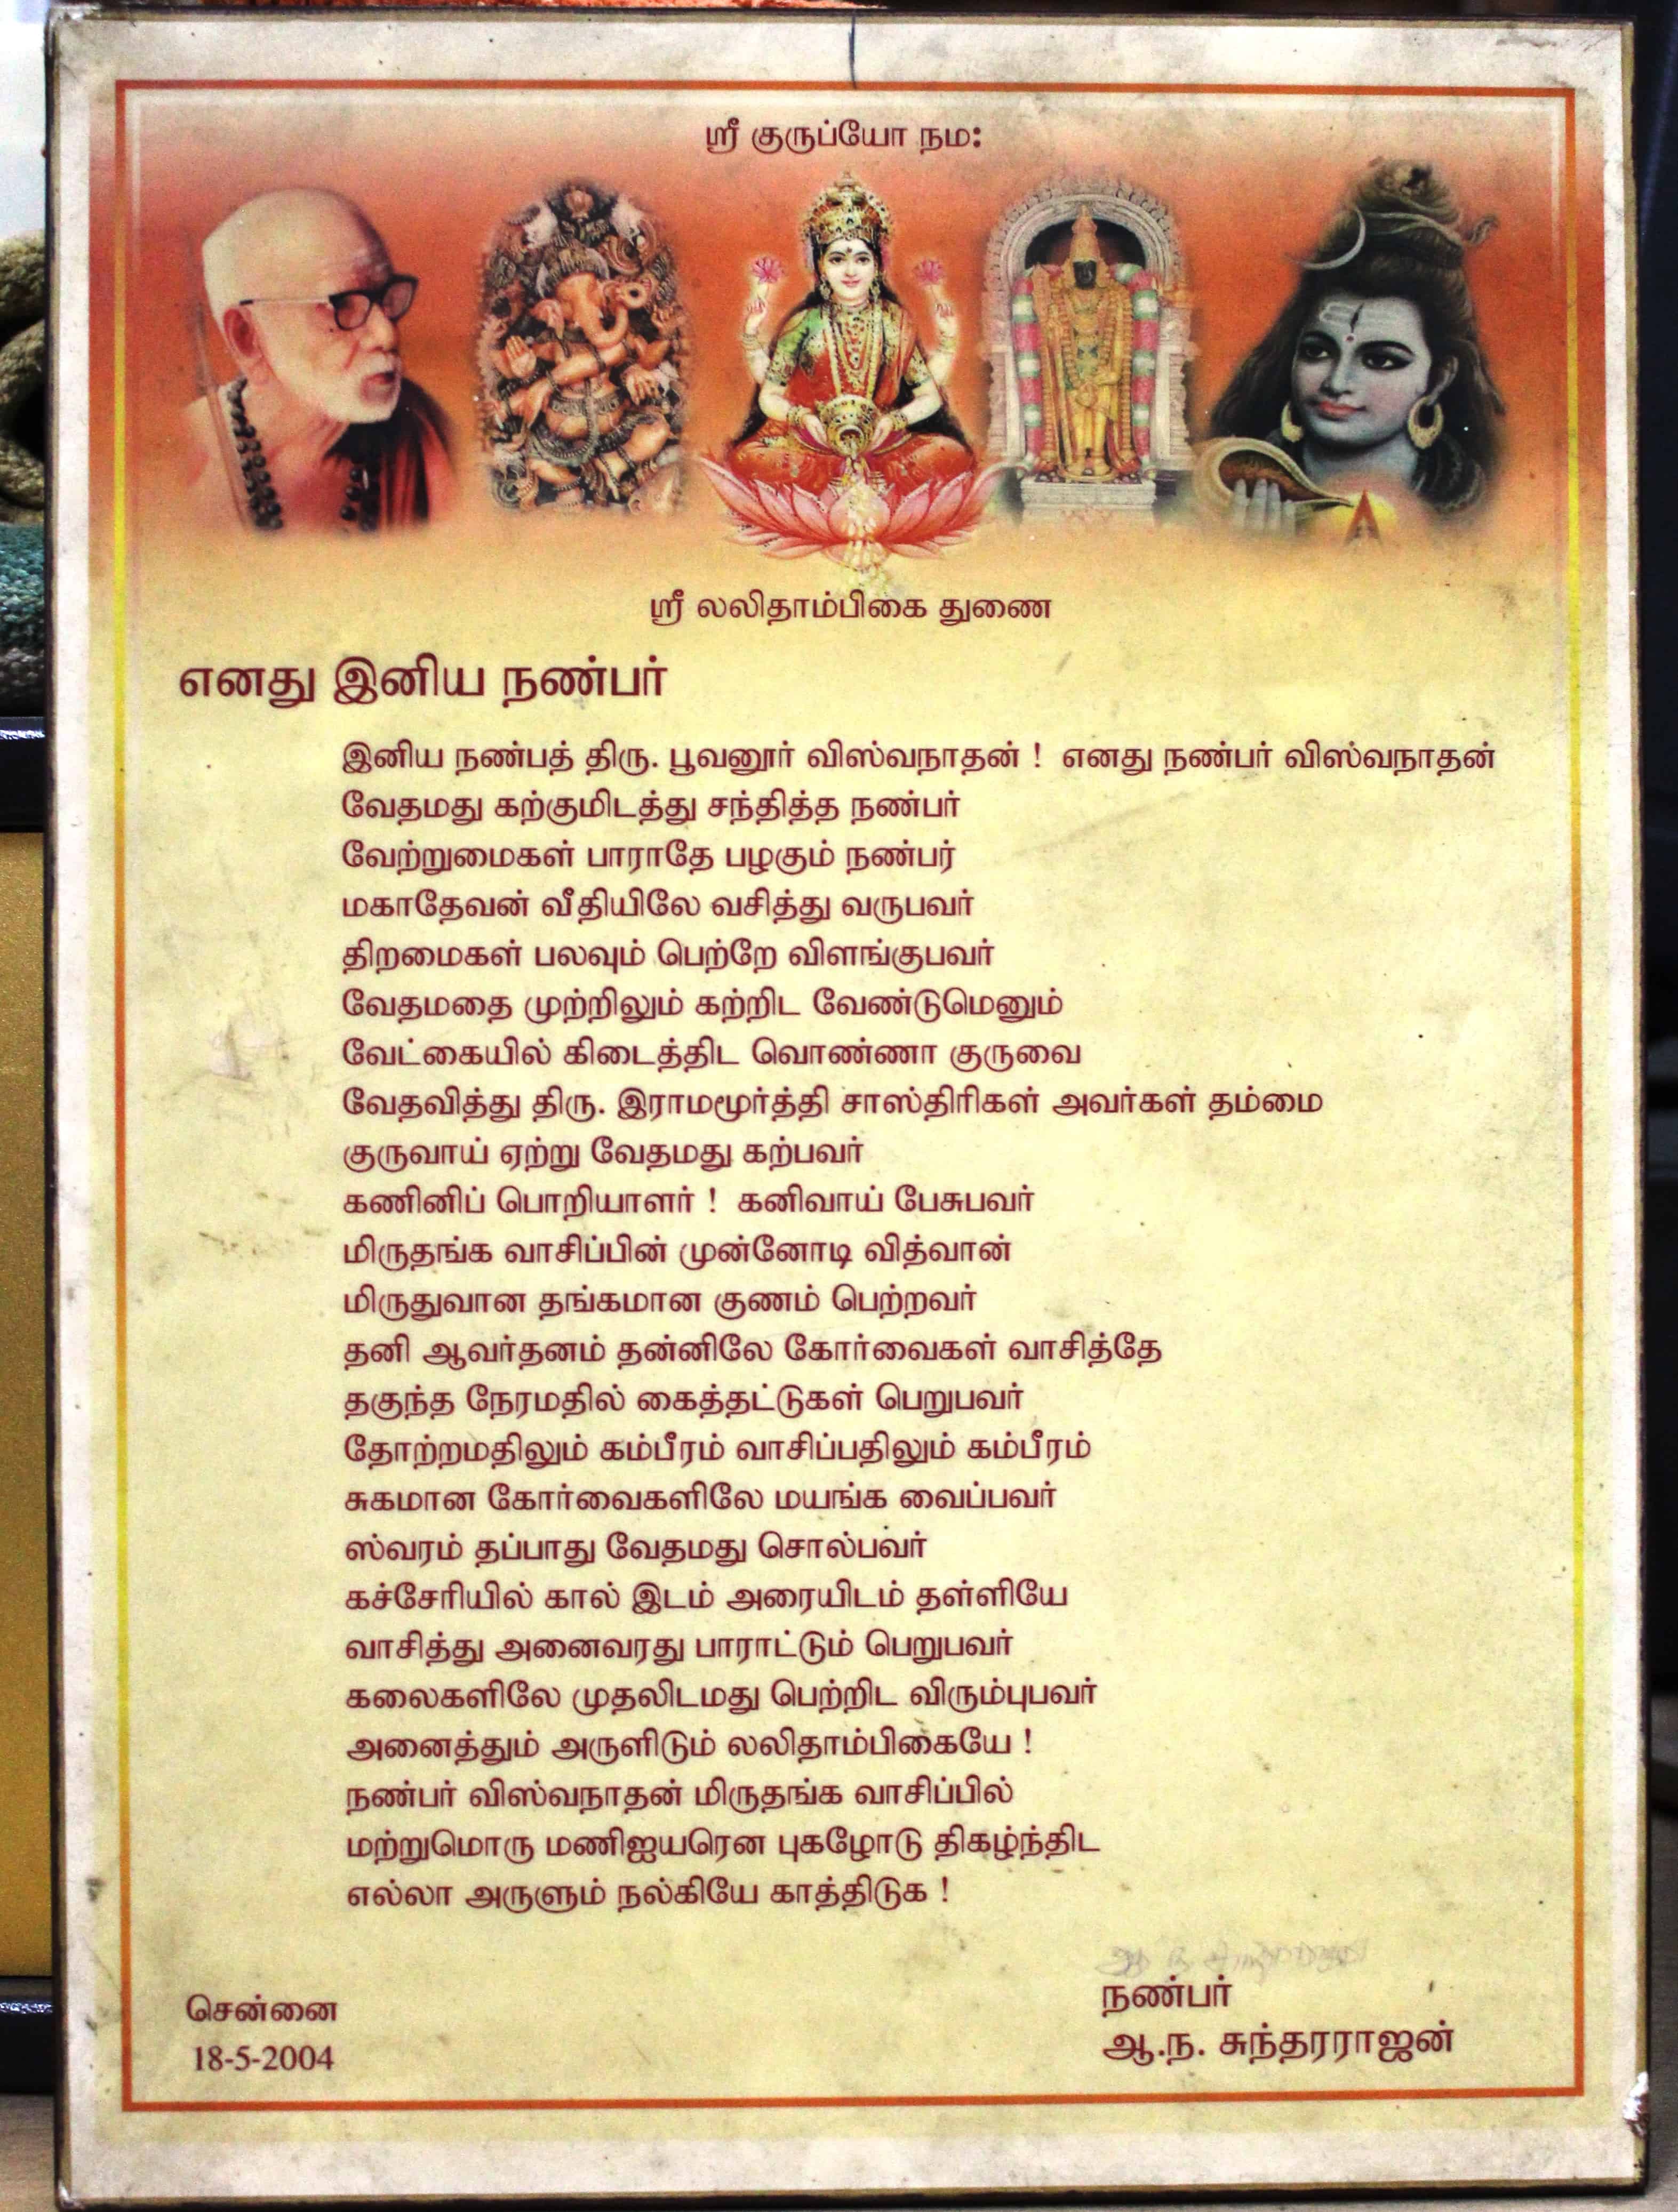 ஸ்ரீ குருப்யோ நம:
ஸ்ரீ லலிதாம்பிகை துணை
எனது இனிய நண்பர்
இனிய நண்பத் திரு. பூவனூர் விஸ்வநாதன் ! எனது நண்பர் விஸ்வநாதன்
வேதமது கற்குமிடத்து சந்தித்த நண்பர்
வேற்றுமைகள் பாராதே பழகும் நண்பர்
மகாதேவன் வீதியிலே வசித்து வருபவர்
திறமைகள் பலவும் பெற்றே விளங்குபவர்
வேதமதை முற்றிலும் கற்றிட வேண்டுமெனும்
வேட்கையில் கிடைத்திட வொண்ணா குருவை
வேதவித்து திரு. இராமமூர்த்தி சாஸ்திரிகள் அவர்கள் தம்மை
குருவாய் ஏற்று வேதமது கற்பவர்
கணினிப் பொறியாளர் ! கனிவாய் பேசுபவர்
மிருதங்க வாசிப்பின் முன்னோடி வித்வான்
மிருதுவான தங்கமான குணம் பெற்றவர்
தனி ஆவர்தனம் தன்னிலே கோர்வைகள் வாசித்தே
தகுந்த நேரமதில் கைத்தட்டுகள் பெறுபவர்
தோற்றமதிலும் கம்பீரம் வாசிப்பதிலும் கம்பீரம்
சுகமான கோர்வைகளிலே மயங்க வைப்பவர்
ஸ்வரம் தப்பாது வேதமது சொல்பவர்
கச்சேரியில் கால் இடம் அரையிடம் தள்ளியே
வாசித்து அனைவரது பாராட்டும் பெறுபவர்
கலைகளிலே முதலிடமது பெற்றிட விரும்புபவர்
அனைத்தும் அருளிடும் லலிதாம்பிகையே !
நண்பர் விஸ்வநாதன் மிருதங்க வாசிப்பில்
மற்றுமொரு மணிஐயரென புகழோடு திகழ்ந்திட
எல்லா அருளும் நல்கியே காத்திடுக !
நண்பர்
ஆ.ந. சுந்தரராஜன்
சென்னை
18-5-2004